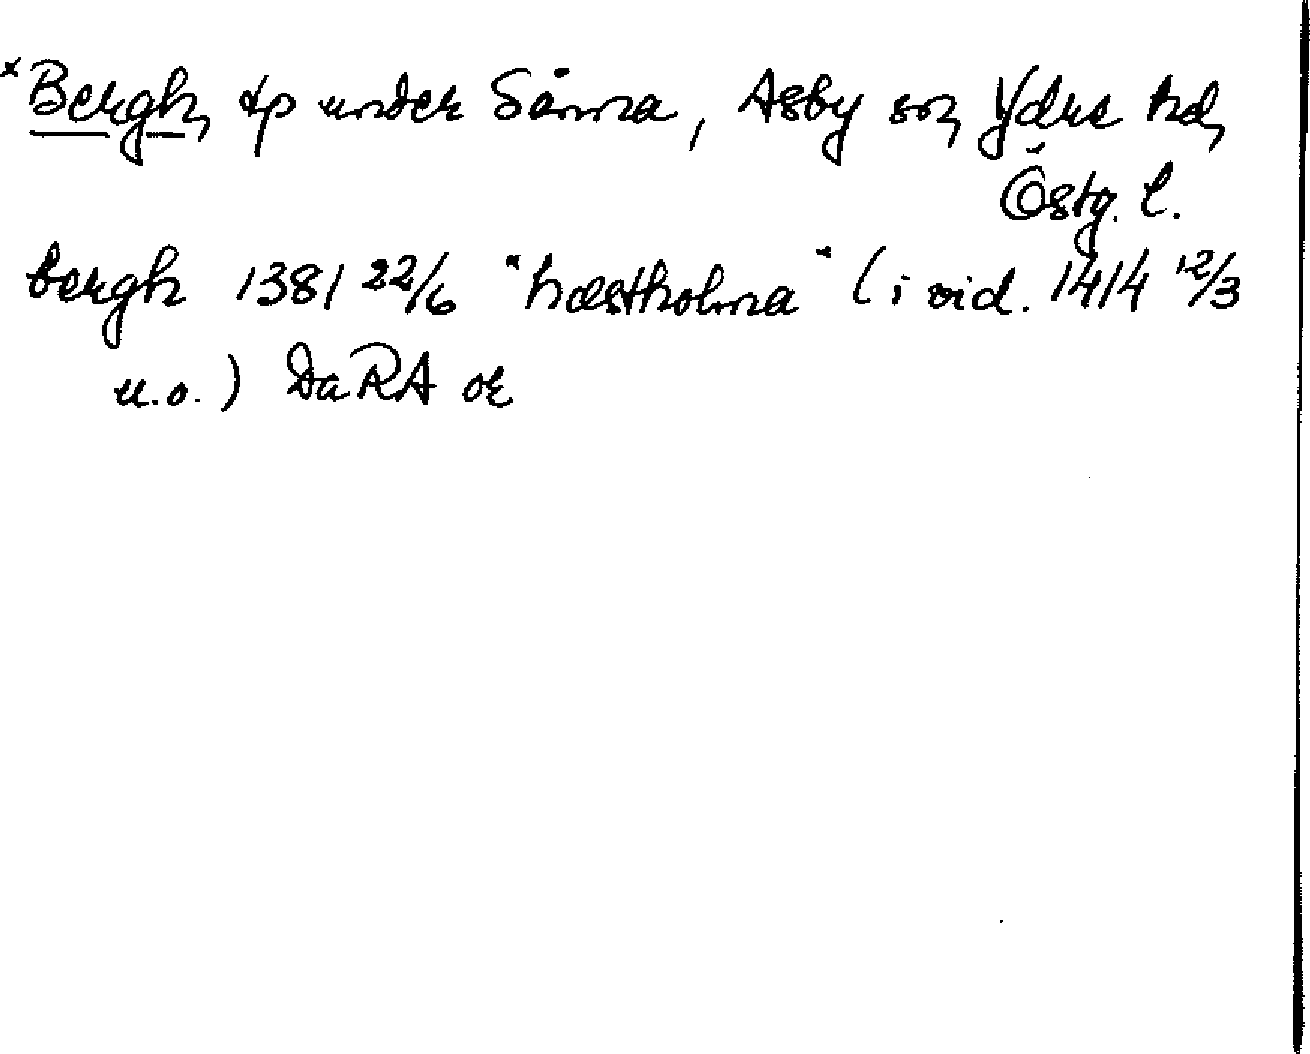 *Bergh, tp under Sånna, Asby sn, Ydre hd,
Östg. l.
bergh 1381 22/6 "hæstholma" (i vid. 1414 12/3
u.o.) DaRA or